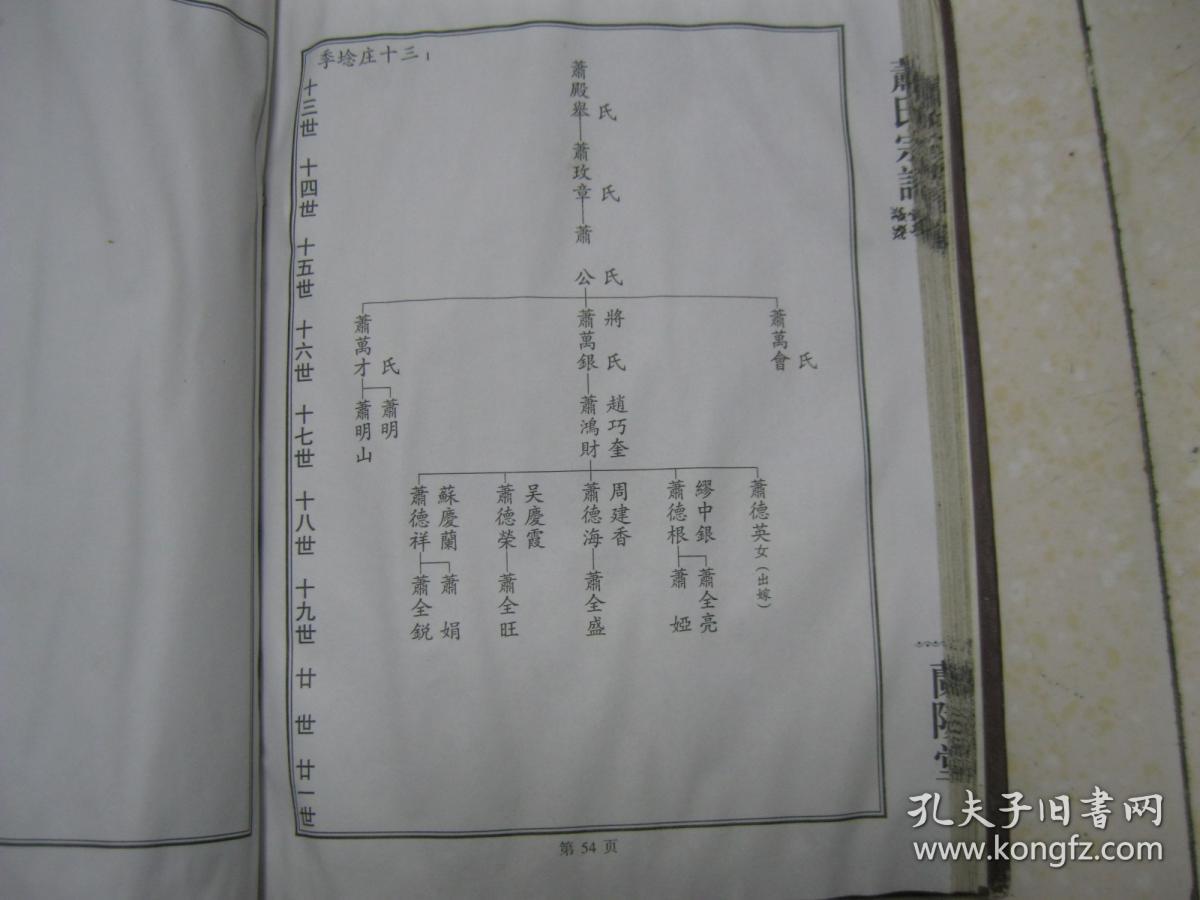 季埝庄十三1
十三世
十四世
十五世
十六世
十七世
十八世
十九世
廿世
廿一世
蕭殿舉
氏
蕭玫章
氏
蕭公
氏
蕭萬會
氏
蕭萬銀
將氏
蕭萬才
氏
趙巧奎
蕭鴻財
蕭明
蕭明山
蕭德英女(出嫁)
繆中銀
蕭德根
周建香
蕭德海
吴慶霞
蕭德榮
蘇慶蘭
蕭德祥
蕭全亮
蕭婭
蕭全盛
蕭全旺
蕭娟
蕭全鋭
第 54 页
蕭氏宗譜
蘭陵堂
孔夫子旧书网
www.kongfz.com